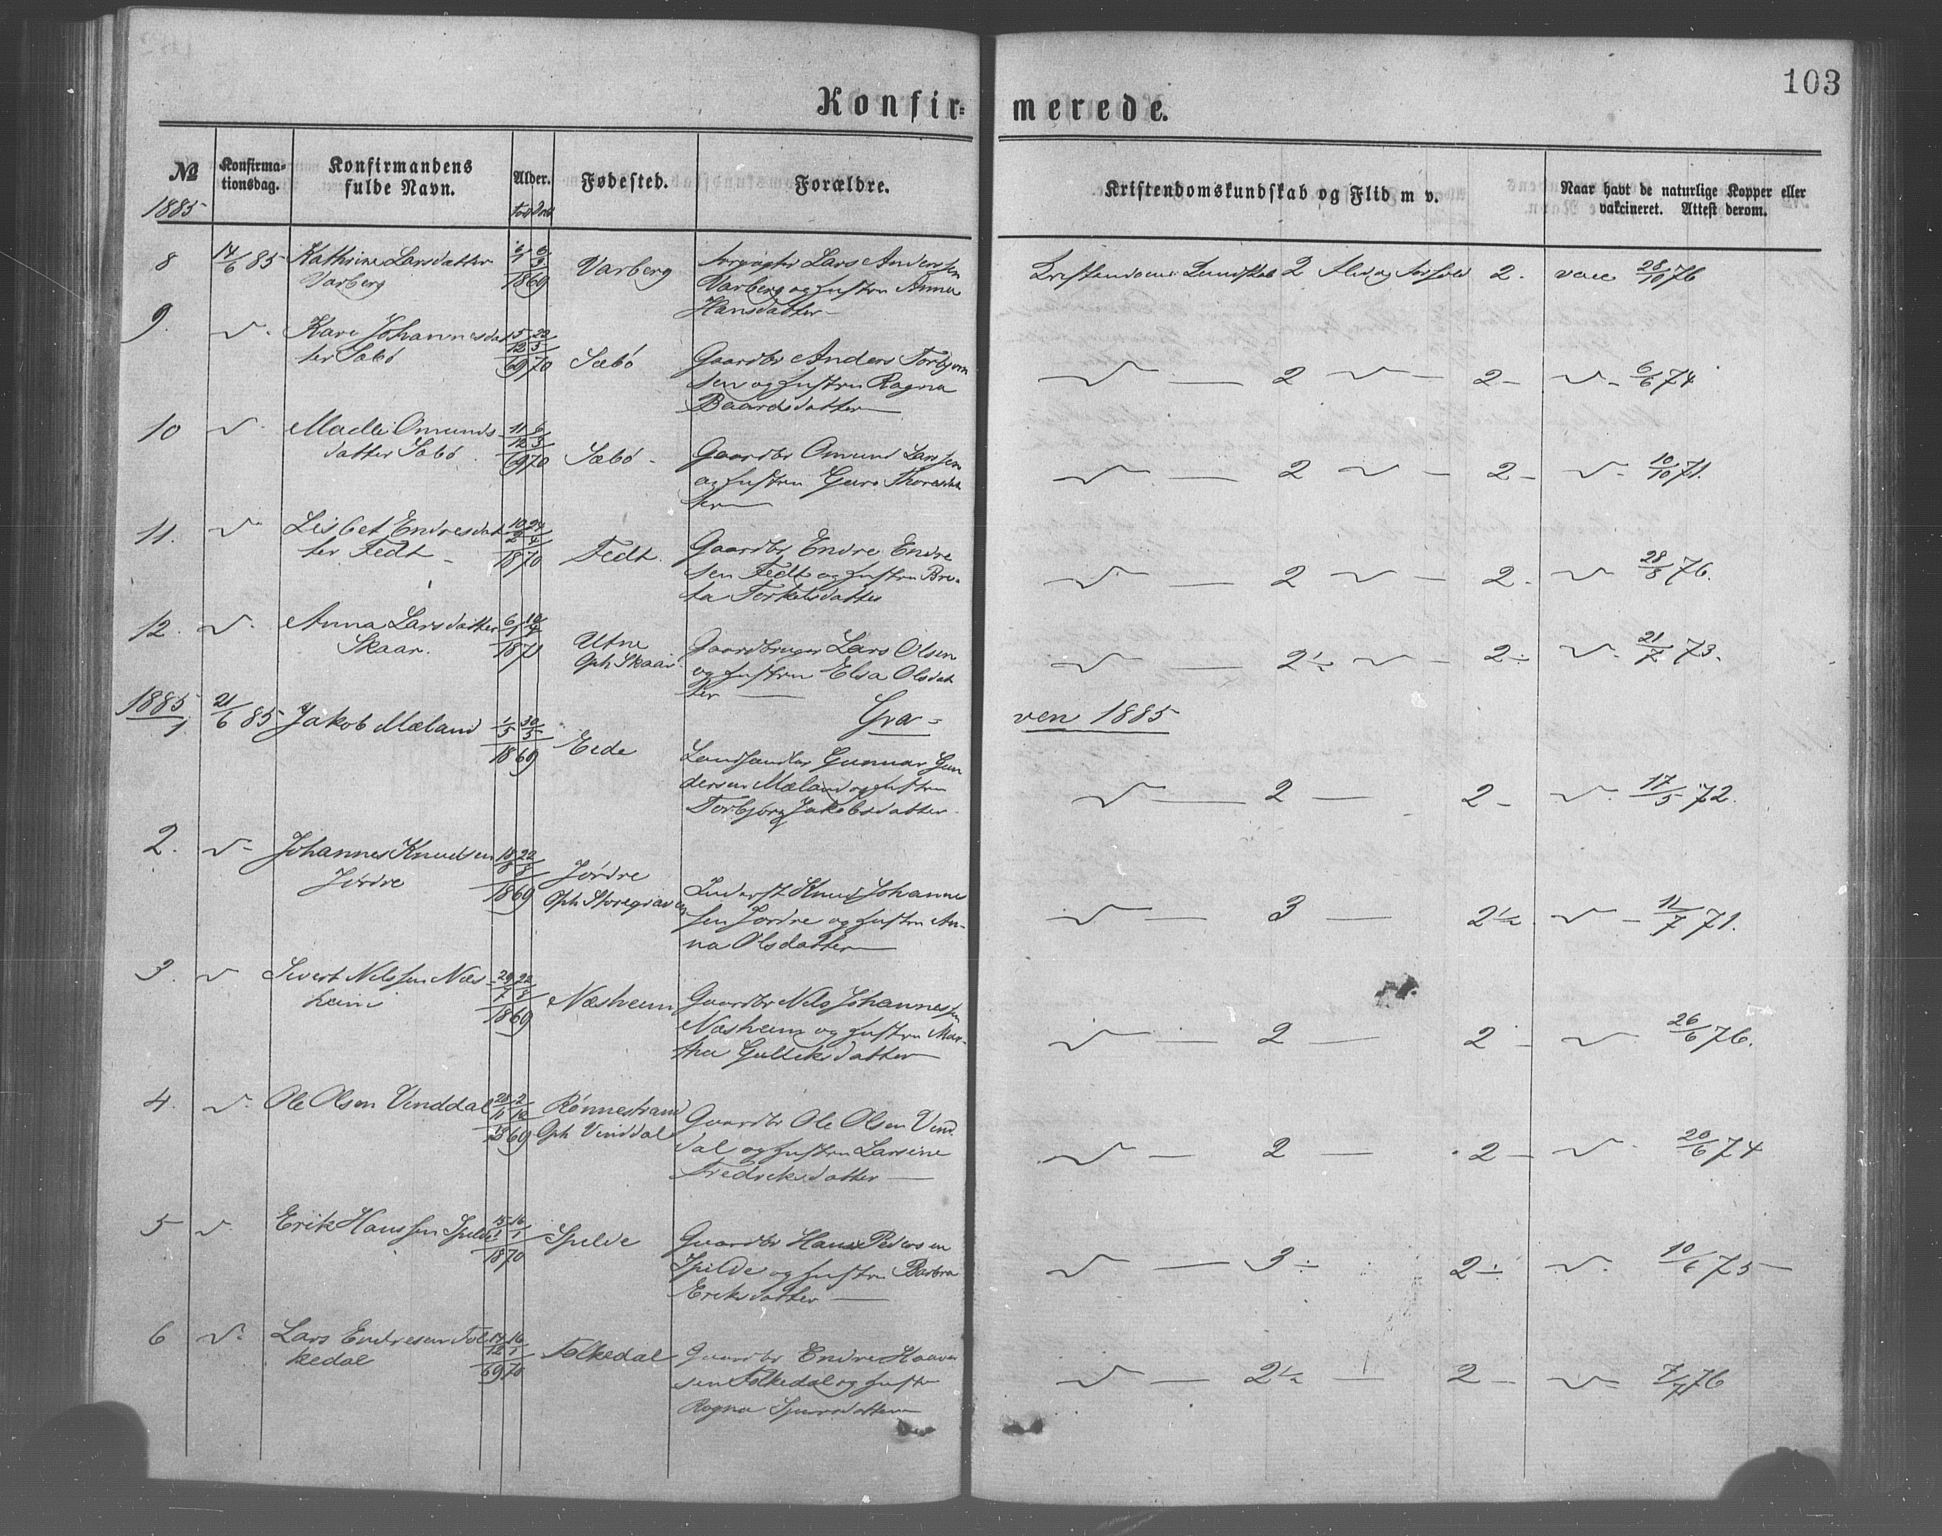 103
Konfir-
merede.
№
Konfirma-
tionsdag.
Konfirmandens
fulde Navn.
Alder.
Fødested.
Forældre.
Kristendomskundskab og Flid m v.
Naar havt de naturlige Kopper eller
vakcineret. Attest derom.
1885
fød døbt
8 14/6 85 Kathrine Larsdatter
Varberg
1869
Varberg
Lars Andersen
Varberg og hustru Anna
Hansdatter
Kristendoms Kundskab 2 Flid og Forhold 2. vacc 28/10 76
9. v. Kari Johannesdat
ter Sæbø
5/12 69 22/3 70
Sæbø
Gaardbr Anders Torbjørn
sen og hustru Ragna
Baardsdatter
v — 2 v — 2 — v — 6/6 74
10 v. Madli Omunds
datter Sæbø
11/12 69 6/3 70
Sæbø
Gaardbr Omund Larssen
og hustru Guro Thoresdat
ter
v — 2 v — 2 — v — 10/10 71.
11. v. Lisbet Endresdat
ter Fedt
1870
Fedt.
Gaardbr Endre Endre
sen Fedt og hustru Bri-
ta Torkelsdatter
v — 2 v — 2 - v 28/8 76.
12. v. Anna Larsdatter
Skaar.
1871
Utne
Oph Skaar
Gaardbruger Lars Olsen
og hustru Elsa Olsdat
ter
v — 2½ v — 2 ÷ v. 21/7 73.
Gra-
ven 1885
1885
1 21/6 85 Jakob Mæland
1/5 30/5 1869
Eide
Landhandler Gunnar Gun
dersen Mæland og hustru
Torbjørg Jakobsdatter
v — 2 — 2 — v. 17/5 72.
2. v. Johannes Knudsen
Jørdre
1869
Jørdre
Oph Storegraven
Inderst Knud Johanne
sen Jørdre og hustru An-
na Olsdatter
v — 3 — 2½ v — 11/7 71.
3. v Sivert Nilssen Næs
heim
1869
Næsheim
Gaardbr Nils Johannessen
Næsheim og hustru Mar-
tha Gulleiksdatter
v — 2 — 2 - v 26/6 76.
4. v. Ole Olsen Vinddal
1869
Rønnestrand
Oph Vinddal
Gaardbr Ole Olsen Vind
dal og hustru Larsine
Fredriksdatter
v — 2 — 2 — v 20/6 74
5 v. Erik Hanssen Spilde
1870
Spilde
Gaardbr Hans Pedersen
Spilde og hustru Barbra
Eriksdatter
v — 3 ÷ 2 ÷ v. 10/6 75
6 v. Lars Endresen Fol
kedal
17/12 69 16/1 70
Folkedal
Gaardbr Endre Haaver
sen Folkedal og hustr
Ragna Sjursdatter
v — 2½ — 2 — v 7/7 76